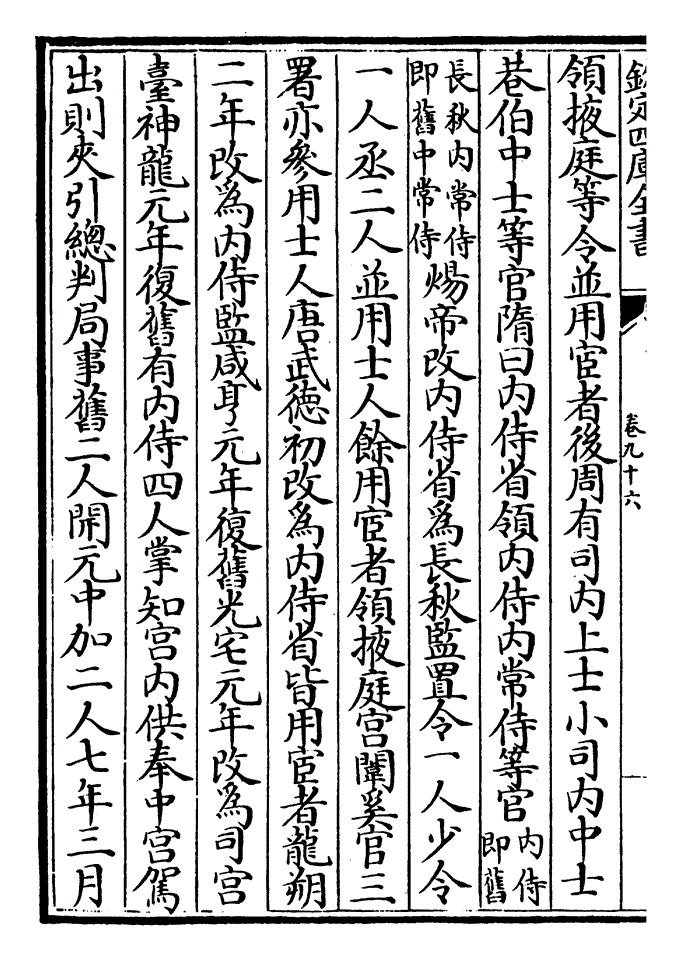 欽定四庫全書
卷九十六
領掖庭等令並用宦者後周有司内上士小司内中士
巷伯中士等官隋曰内侍省領内侍内常侍等官内侍即舊
長秋内常侍即舊中常侍煬帝改内侍省為長秋監置令一人少令
一人丞二人並用士人餘用宦者領掖庭宫闈奚官三
署亦參用士人唐武德初改為内侍省皆用宦者龍朔
二年改為内侍監咸亨元年復舊光宅元年改為司宫
臺神龍元年復舊有内侍四人掌知宫内供奉中宫駕
出則夾引總判局事舊二人開元中加二人七年三月